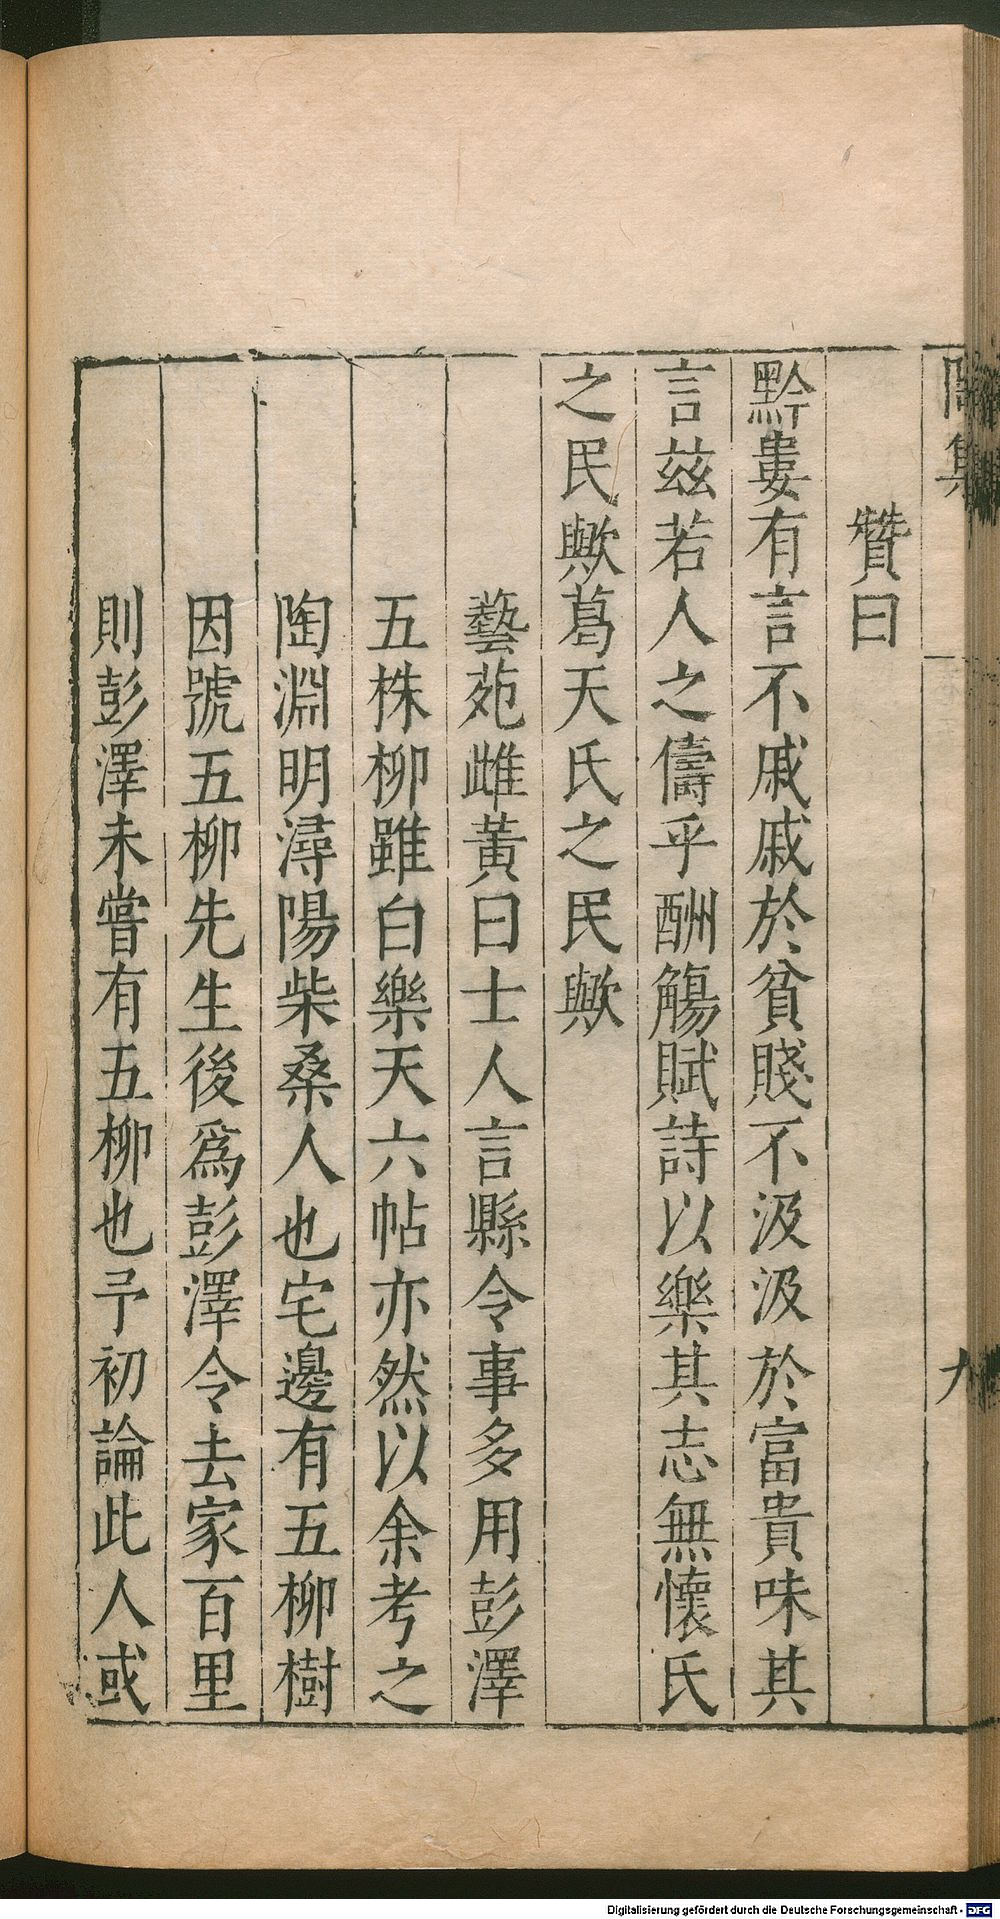 陶集
九
贊曰
黔婁有言不戚戚於貧賤不汲汲於富貴味其
言茲若人之儔乎酬觴賦詩以樂其志無懷氏
之民歟葛天氏之民歟
藝苑雌黃曰士人言縣令事多用彭澤
五株柳雖白樂天六帖亦然以余考之
陶淵明潯陽柴桑人也宅邊有五柳樹
因號五柳先生後爲彭澤令去家百里
則彭澤未嘗有五柳也予初論此人或
Digitalisierung gefördert durch die Deutsche Forschungsgemeinschaft - DFG